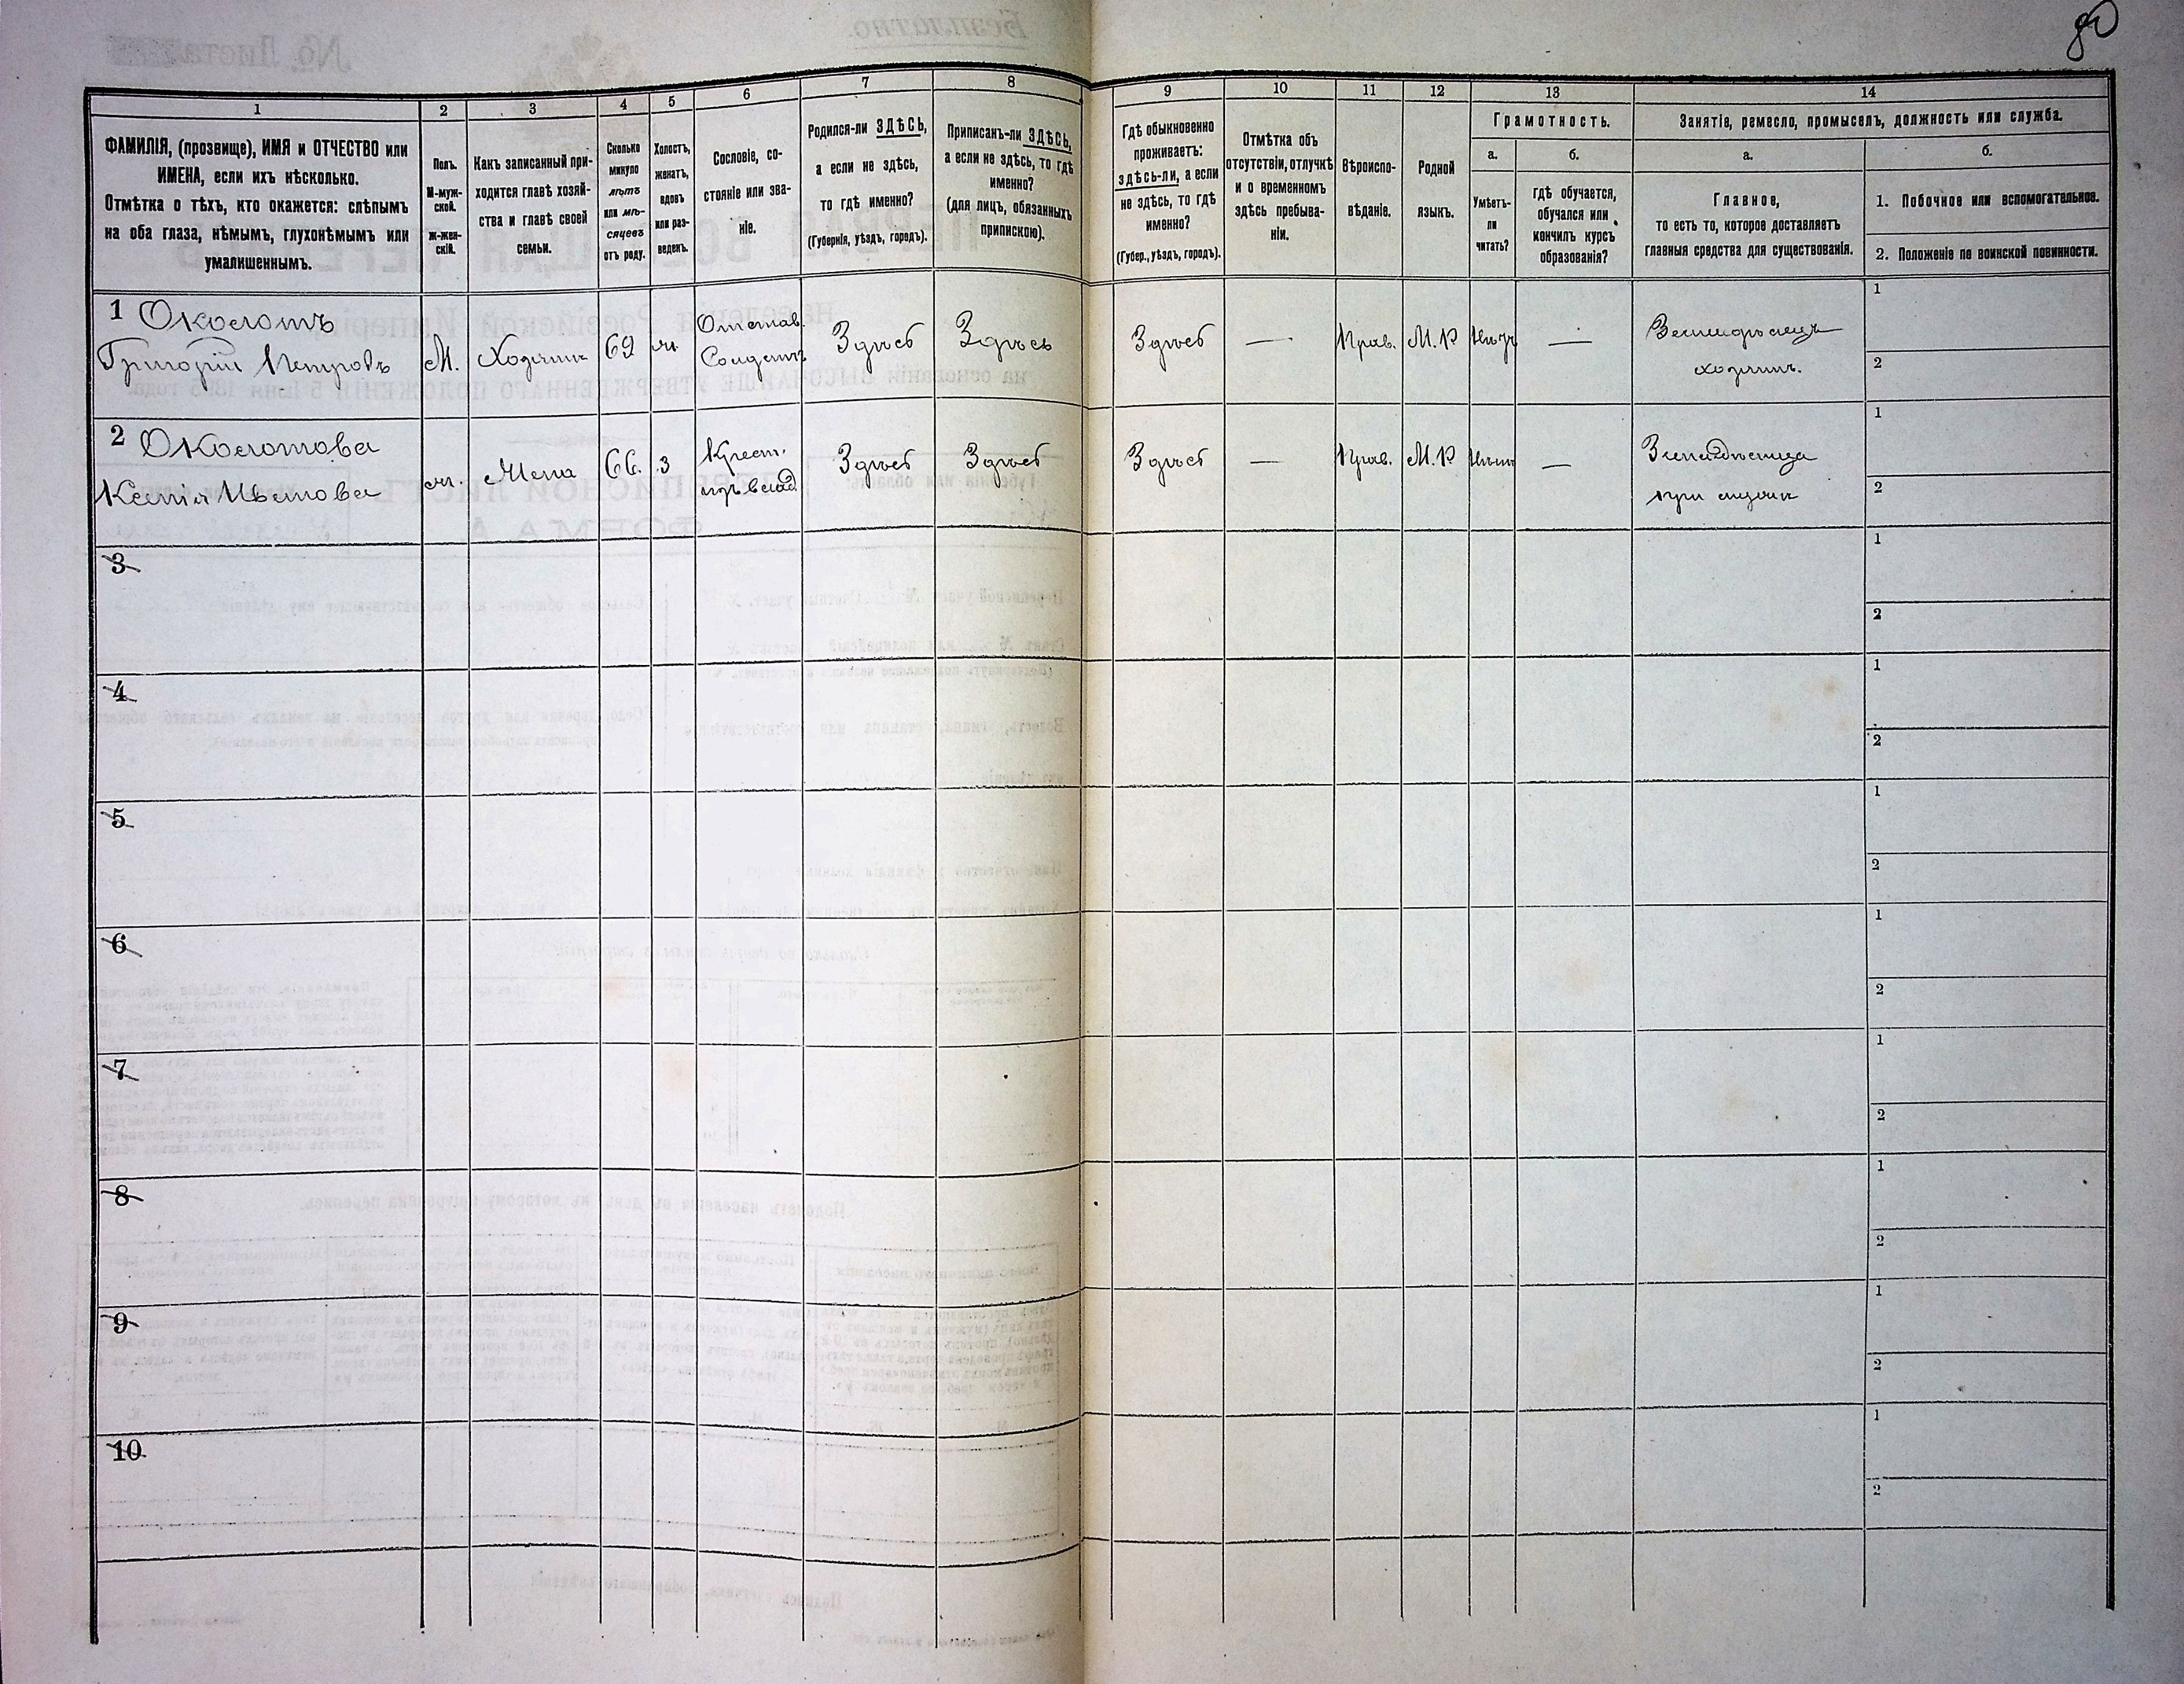 80
1
2
3
4
5
6
7
8
9
10
11
12
13
14
ФАМИЛІЯ, (прозвище), ИМЯ и ОТЧЕСТВО или
ИМЕНА, если ихъ нѣсколько.
Отмѣтка о тѣхъ, кто окажется: слѣпымъ
на оба глаза, нѣмымъ, глухонѣмымъ или
умалишеннымъ.
Полъ.
М-муж-
ской.
Ж-жен-
скій.
Какъ записанный при-
ходится главѣ хозяй-
ства и главѣ своей
семьи.
Сколько
минуло
лѣтъ
или мѣ-
сяцевъ
отъ роду.
Холостъ,
женатъ,
вдовъ
или раз-
веденъ.
Сословіе, со-
стояніе или зва-
ніе.
Родился-ли ЗДѢСЬ,
а если не здѣсь,
то гдѣ именно?
(Губернія, уѣздъ, городъ).
Приписанъ-ли ЗДѢСЬ,
а если не здѣсь, то гдѣ
именно?
(для лицъ, обязанныхъ
припискою).
Гдѣ обыкновенно
проживаетъ:
здѣсь-ли, а если
не здѣсь, то гдѣ
именно?
(Губер., уѣздъ, городъ).
Отмѣтка объ
отсутствіи, отлучкѣ
и о временномъ
здѣсь пребыва-
ніи.
Вѣроиспо-
вѣданіе.
Родной
языкъ.
Грамотность.
а.
Умѣетъ-
ли
читать?
б.
гдѣ обучается,
обучался или
кончилъ курсъ
образованія?
Занятіе, ремесло, промыселъ, должность или служба.
а.
Главное,
то есть то, которое доставляетъ
главныя средства для существованія.
б.
1. Побочное или вспомогательное.
2. Положеніе по воинской повинности.
1 Околотъ
Григорій Петровъ
М.
Хозяинъ
69
Отстав.
Солдатъ
Здѣсь
Здѣсь
Здѣсь
—
Прав.
М.Р
—
Земледѣлецъ
хозяинъ.
1
2
2 Околотова
Ксенія
Жена
66.
з
Крест.
Здѣсь
Здѣсь
Здѣсь
—
Прав.
М.Р
—
Земледѣлица
при мужѣ
1
2
3
1
2
4
1
2
5
1
2
6
1
2
7
1
2
8
1
2
9
1
2
10
1
2